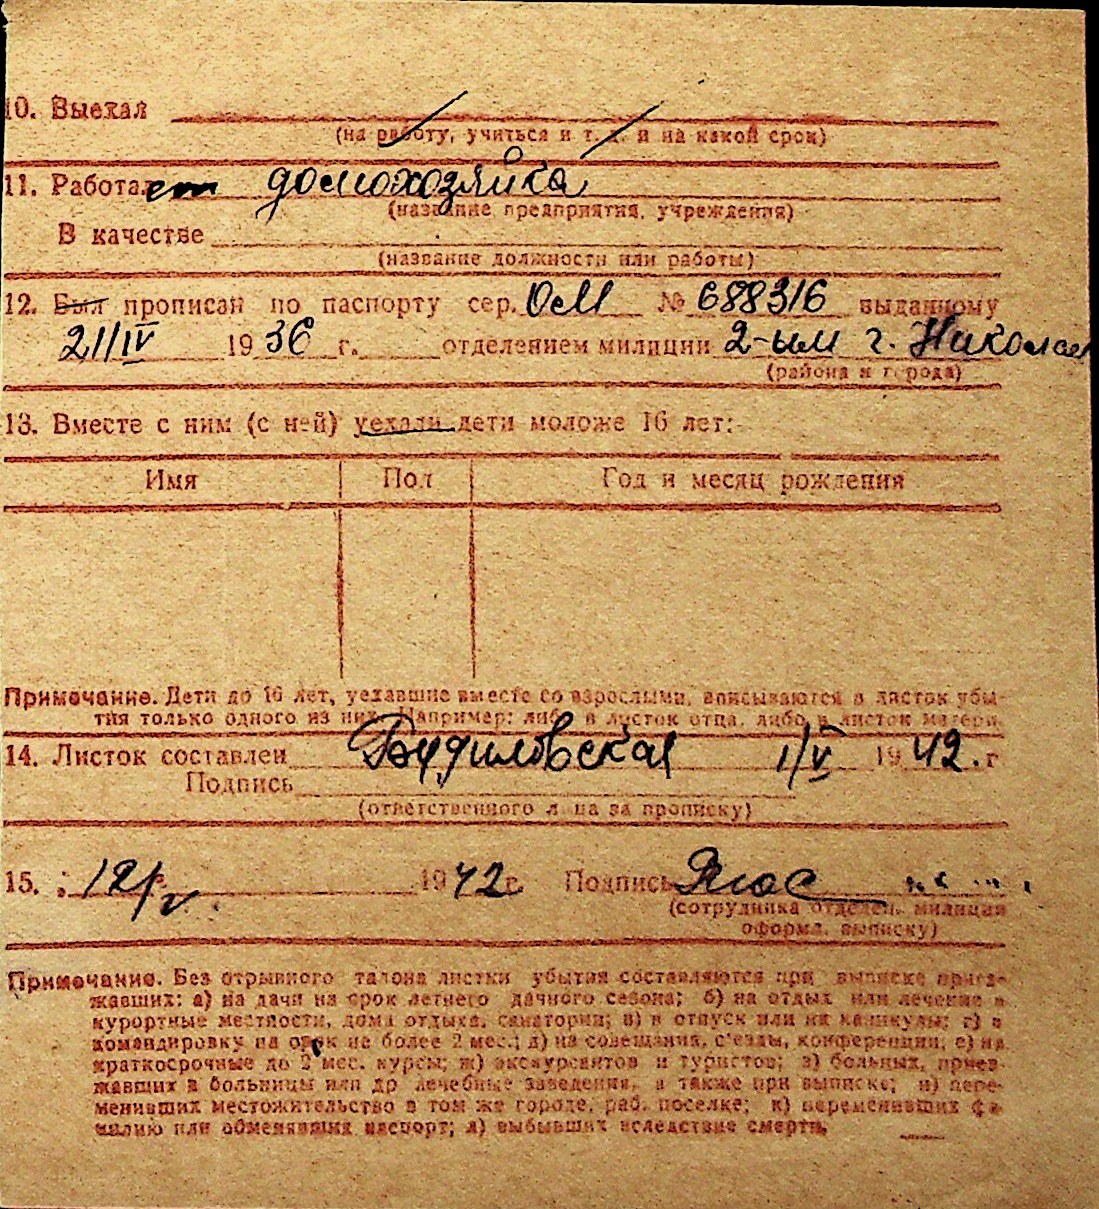 10. Выехал
(на работу, учиться и т. д. и на какой срок)
11. Работает домохозяйка
(название предприятия, учреждения)
В качестве
(название должности или работы)
12. Был прописан по паспорту сер. ОсМ № 688316 выданному
21/IV 1936 г. отделением милиции 2-ым г. Николаев
(района и города)
13. Вместе с ним (с ней) уехали дети моложе 16 лет:
Имя Пол Год и месяц рождения
Примечание. Дети до 16 лет, уехавшие вместе со взрослыми, вписываются в листок убы-
тия только одного из них. Например: либо в листок отца, либо в листок матери.
14. Листок составлен Будиловская 1/V 1942. г
Подпись
(ответственного лица за прописку)
15. 12/V 1942 г. Подпись
(сотрудника отделен. милиции
оформл. выписку)
Примечание. Без отрывного талона листки убытия составляются при выписке приез-
жавших: а) на дачи на срок летнего дачного сезона; б) на отдых или лечение в
курортные местности, дома отдыха, санатории; в) в отпуск или на каникулы; г) в
командировку на срок не более 2 мес.; д) на совещания, съезды, конференции; е) на
краткосрочные до 2 мес. курсы; ж) экскурсантов и туристов; з) больных, приез-
жавших в больницы или др лечебные заведения, а также при выписке; и) пере-
менивших местожительство в том же городе, раб. поселке; к) переменивших фа-
милию или обменявших паспорт; л) выбывших вследствие смерти.